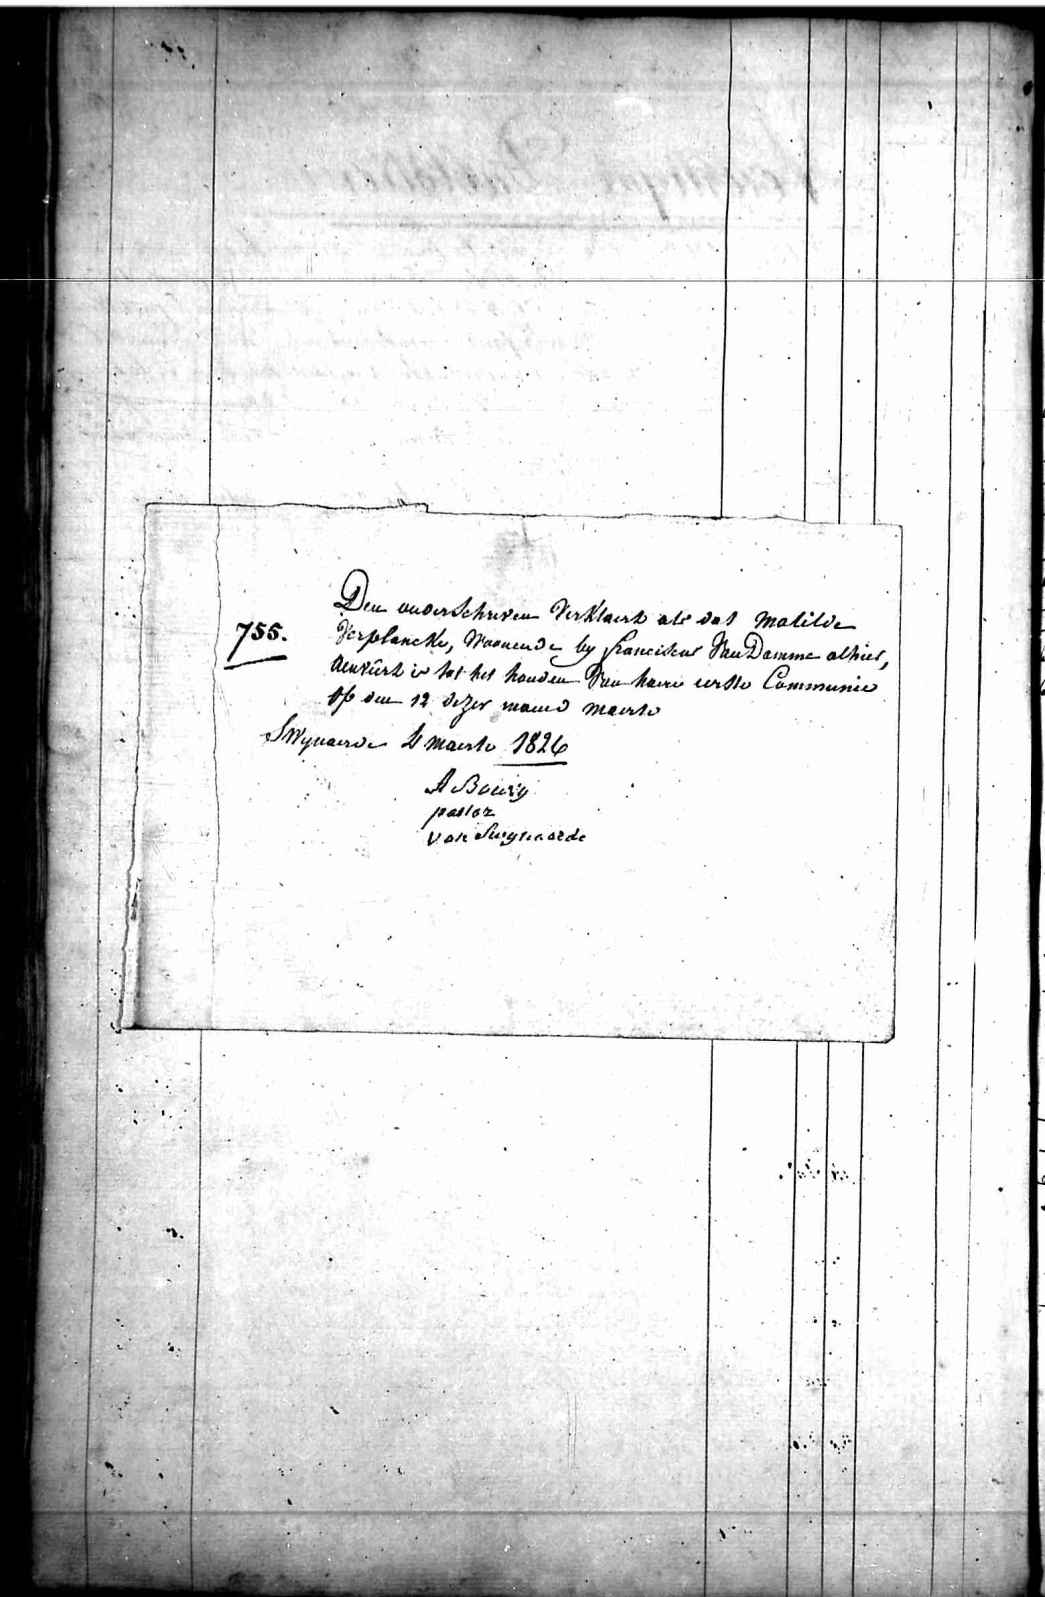 755.
Den onderschreven Verklaert als dat Matilde
Verplancke, Woonende by franciscus Van Damme alhier,
Aenvêrt is tot het houden Van haere eerste Communie
Op den 12 dezer maend maerte
SWynaerde 4 maerte 1826
A Bauwy
pastor
van Swynaerde